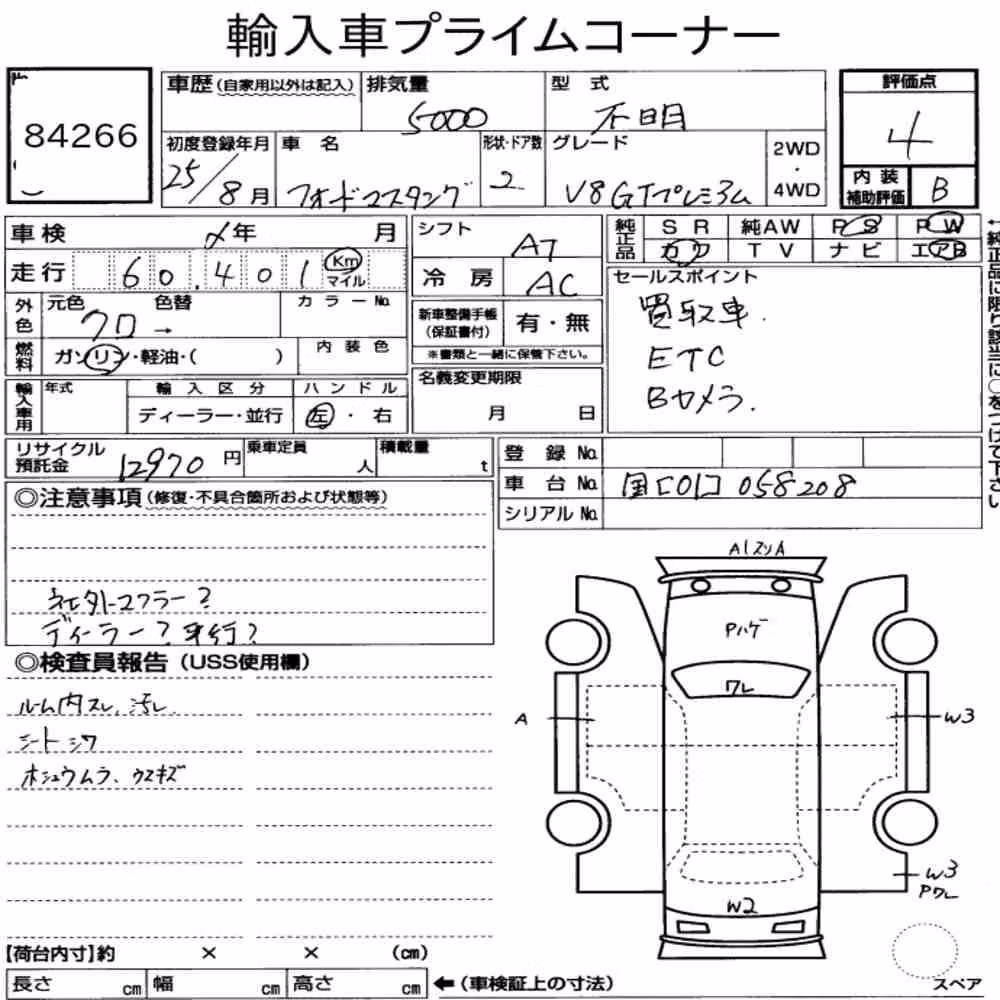 輸入車プライムコーナー
84266
車歴(自家用以外は記入) 排気量 5000 型式 不明
初度登録年月 25/8月 車名 フォードマスタング 形状・ドア数 2 グレード V8 GTプレミアム 2WD・4WD
評価点 4
内装補助評価 B
車検 〆年 月
走行 60,401 Km マイル
外色 元色 クロ → 色替 カラーNo.
燃料 ガソリン・軽油・( ) 内装色
輸入車用 年式 輸入区分 ディーラー・並行 ハンドル 左・右
リサイクル預託金 12970円 乗車定員 人 積載量 t
シフト AT
冷房 AC
新車整備手帳(保証書付) 有・無
※書類と一緒に保管下さい。
名義変更期限 月 日
純正品 SR 純AW PS PW
カワ TV ナビ エアB
←純正品に限り該当に○をつけて下さい
セールスポイント
買取車.
ETC
Bカメラ.
登録No.
車台No. 国[01] 058208
シリアルNo.
◎注意事項(修復・不具合箇所および状態等)
社外マフラー?
ディーラー?並行?
◎検査員報告(USS使用欄)
ルーム内スレ,汚レ.
シートシワ
ホシュウムラ、ウスキズ
A1スリA
Pハゲ
ワレ
A
W3
W3
Pワレ
W2
【荷台内寸】約 × × (cm)
長さ cm 幅 cm 高さ cm ←(車検証上の寸法)
スペア